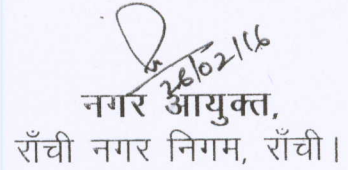 26/02/16
नगर आयुक्त,
राँची नगर निगम, राँची।